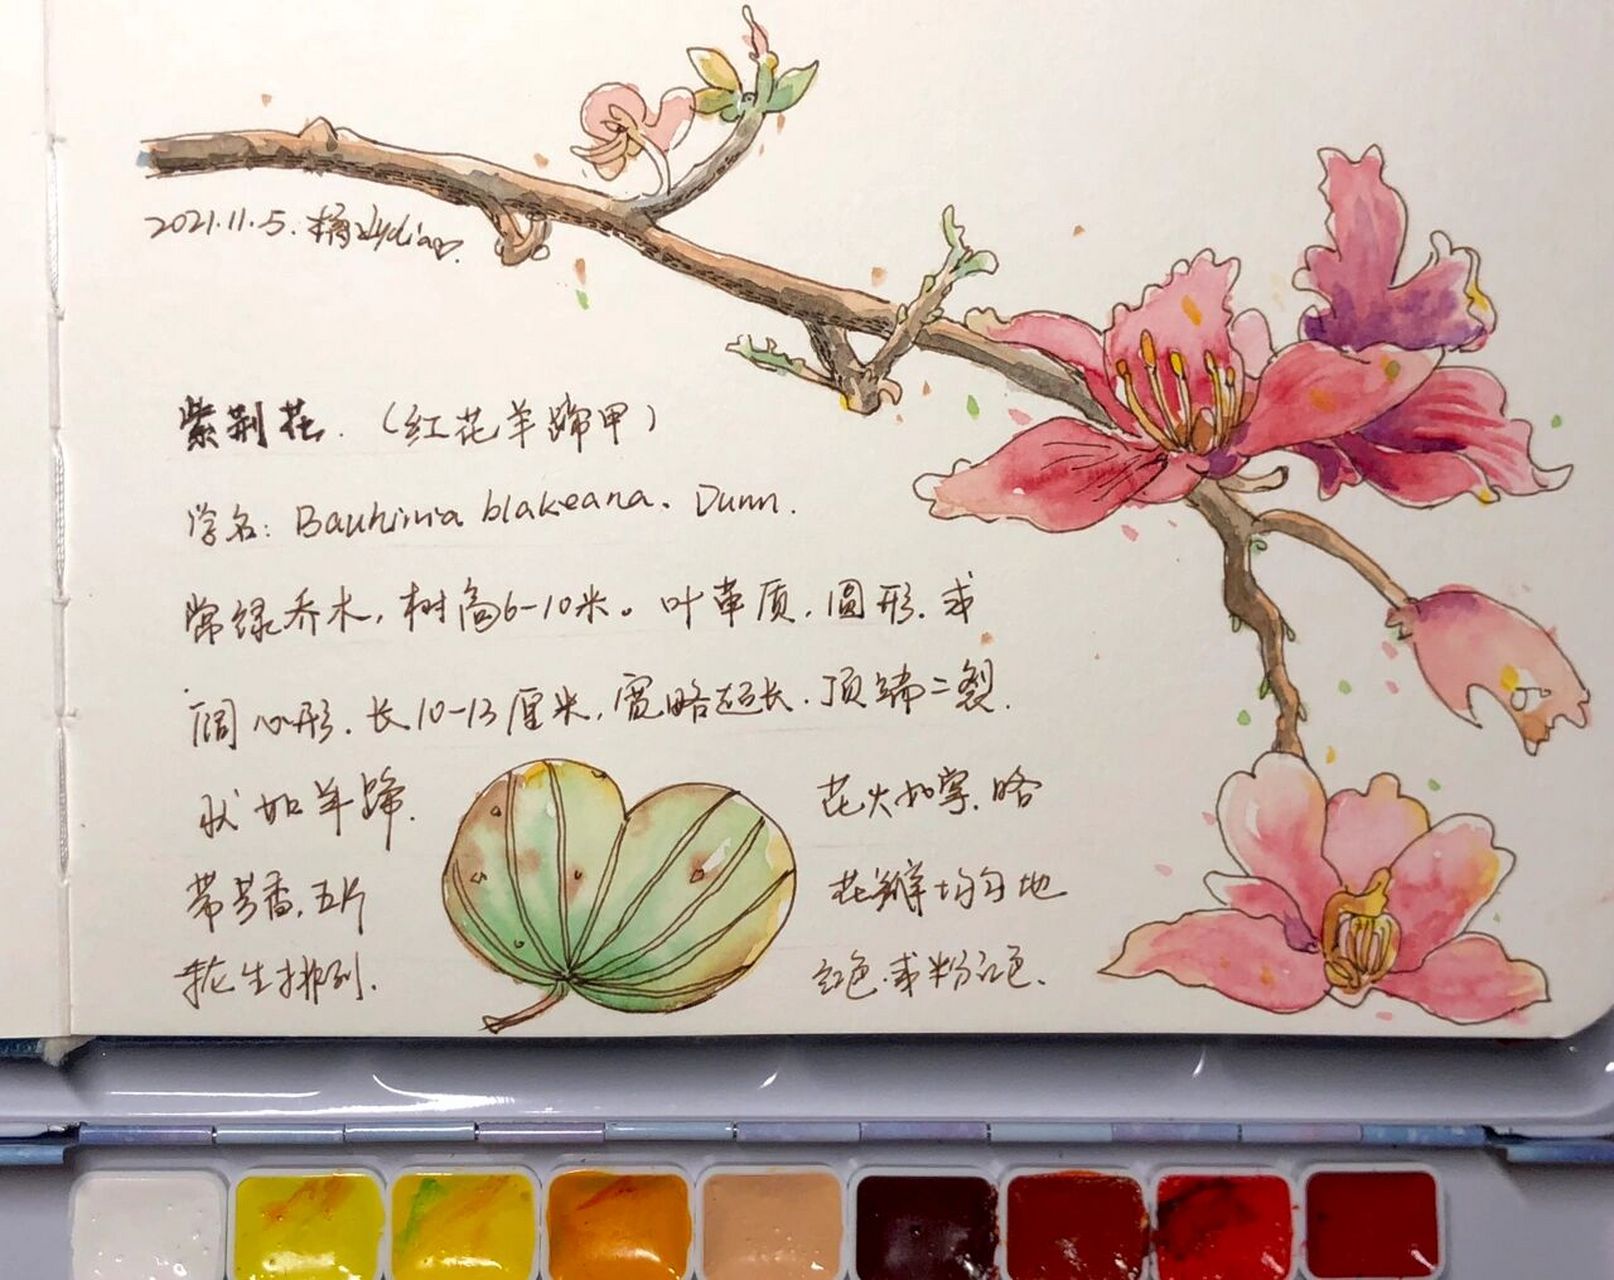 2021.11.5.
紫荆花.（红花羊蹄甲）
学名: Bauhinia blakeana. Dunn.
常绿乔木, 树高6-10米。叶革质, 圆形. 或
阔心形. 长10-13厘米, 宽略超长. 顶端二裂.
状如羊蹄. 花大如掌. 略
带芳香, 五片 花瓣均匀地
轮生排列. 红色. 或粉红色.